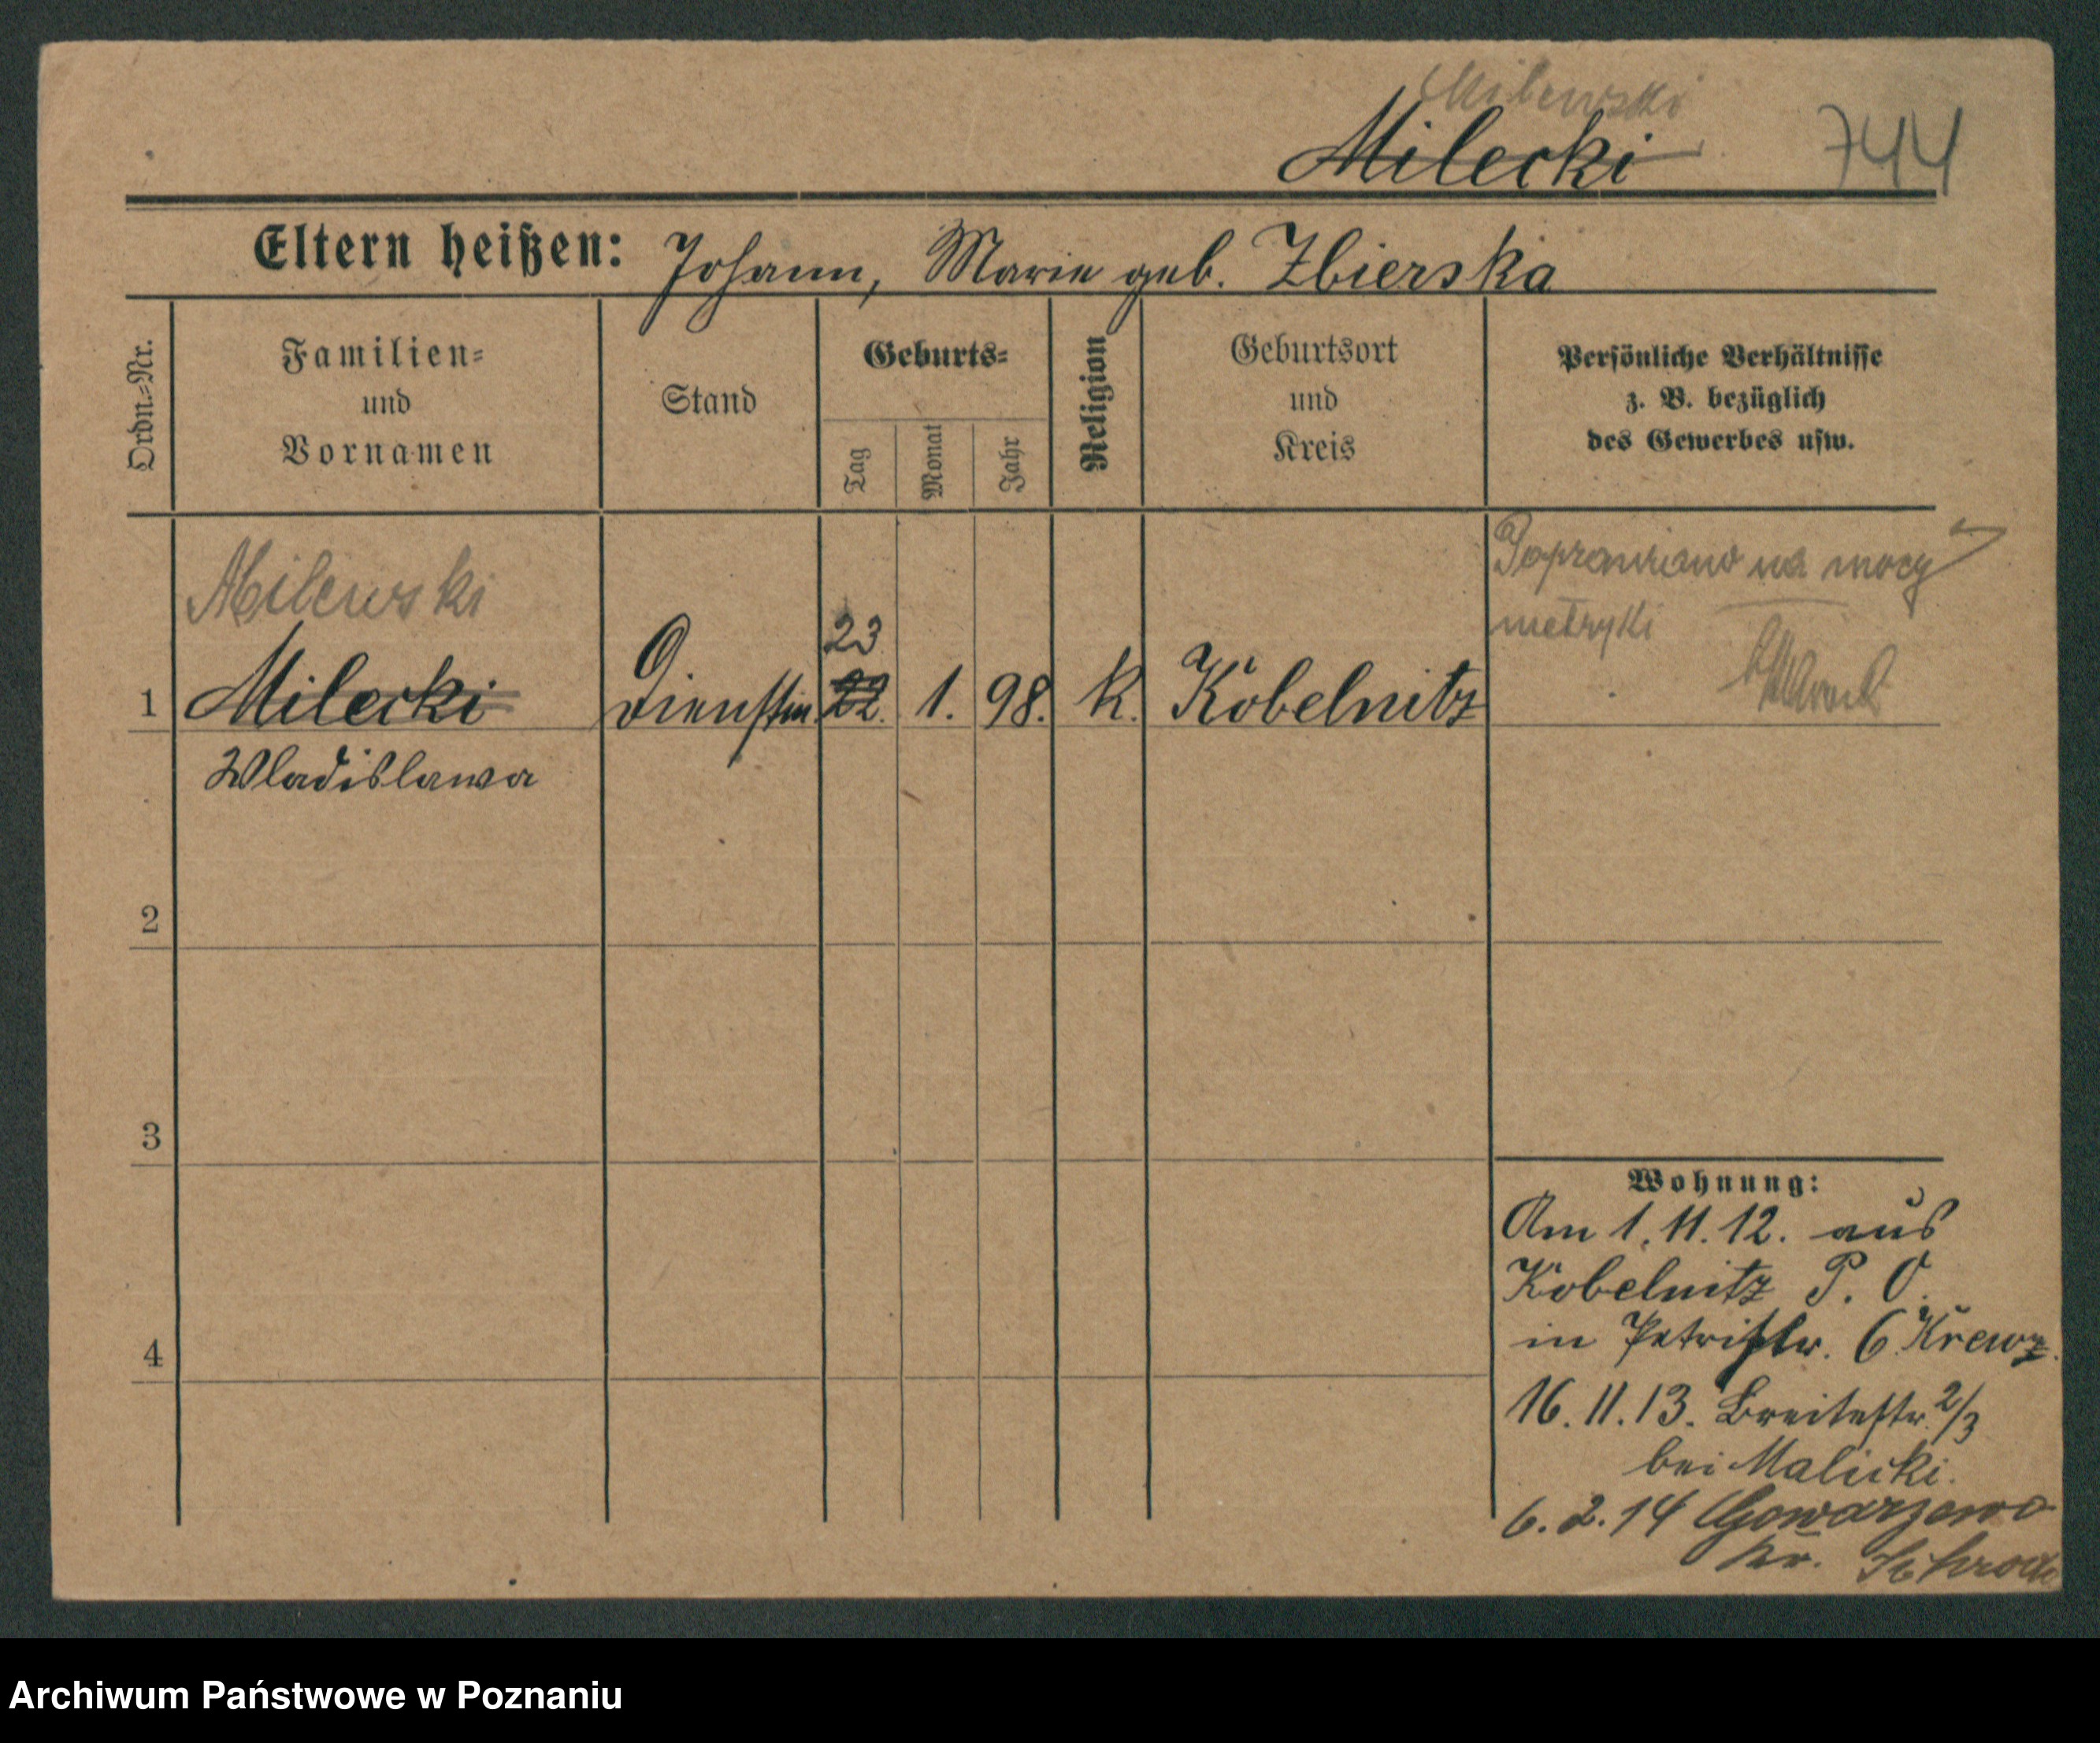 Milewski
Milecki 744
Eltern heißen: Johann, Marie geb. Zbierska
Ordn.=Nr.
Familien=
und
Vornamen
Stand
Geburts=
Tag
Monat
Jahr
Religion
Geburtsort
und
Kreis
Persönliche Verhältnisse
z. B. bezüglich
des Gewerbes usw.
Milewski
Poprawiano na mocy
metryki
23
1 Milecki Dienstm. 22. 1. 98. K. Kobelnitz
Wladislawa
2
3
4
Wohnung:
Am 1.11.12. aus
Kobelnitz P. O.
in Petristr. 6 Krewz.
16.11.13. Breitestr. 2/3
bei Malicki.
6.2.14 Gowarzewo
Kr. Schroda
Archiwum Państwowe w Poznaniu